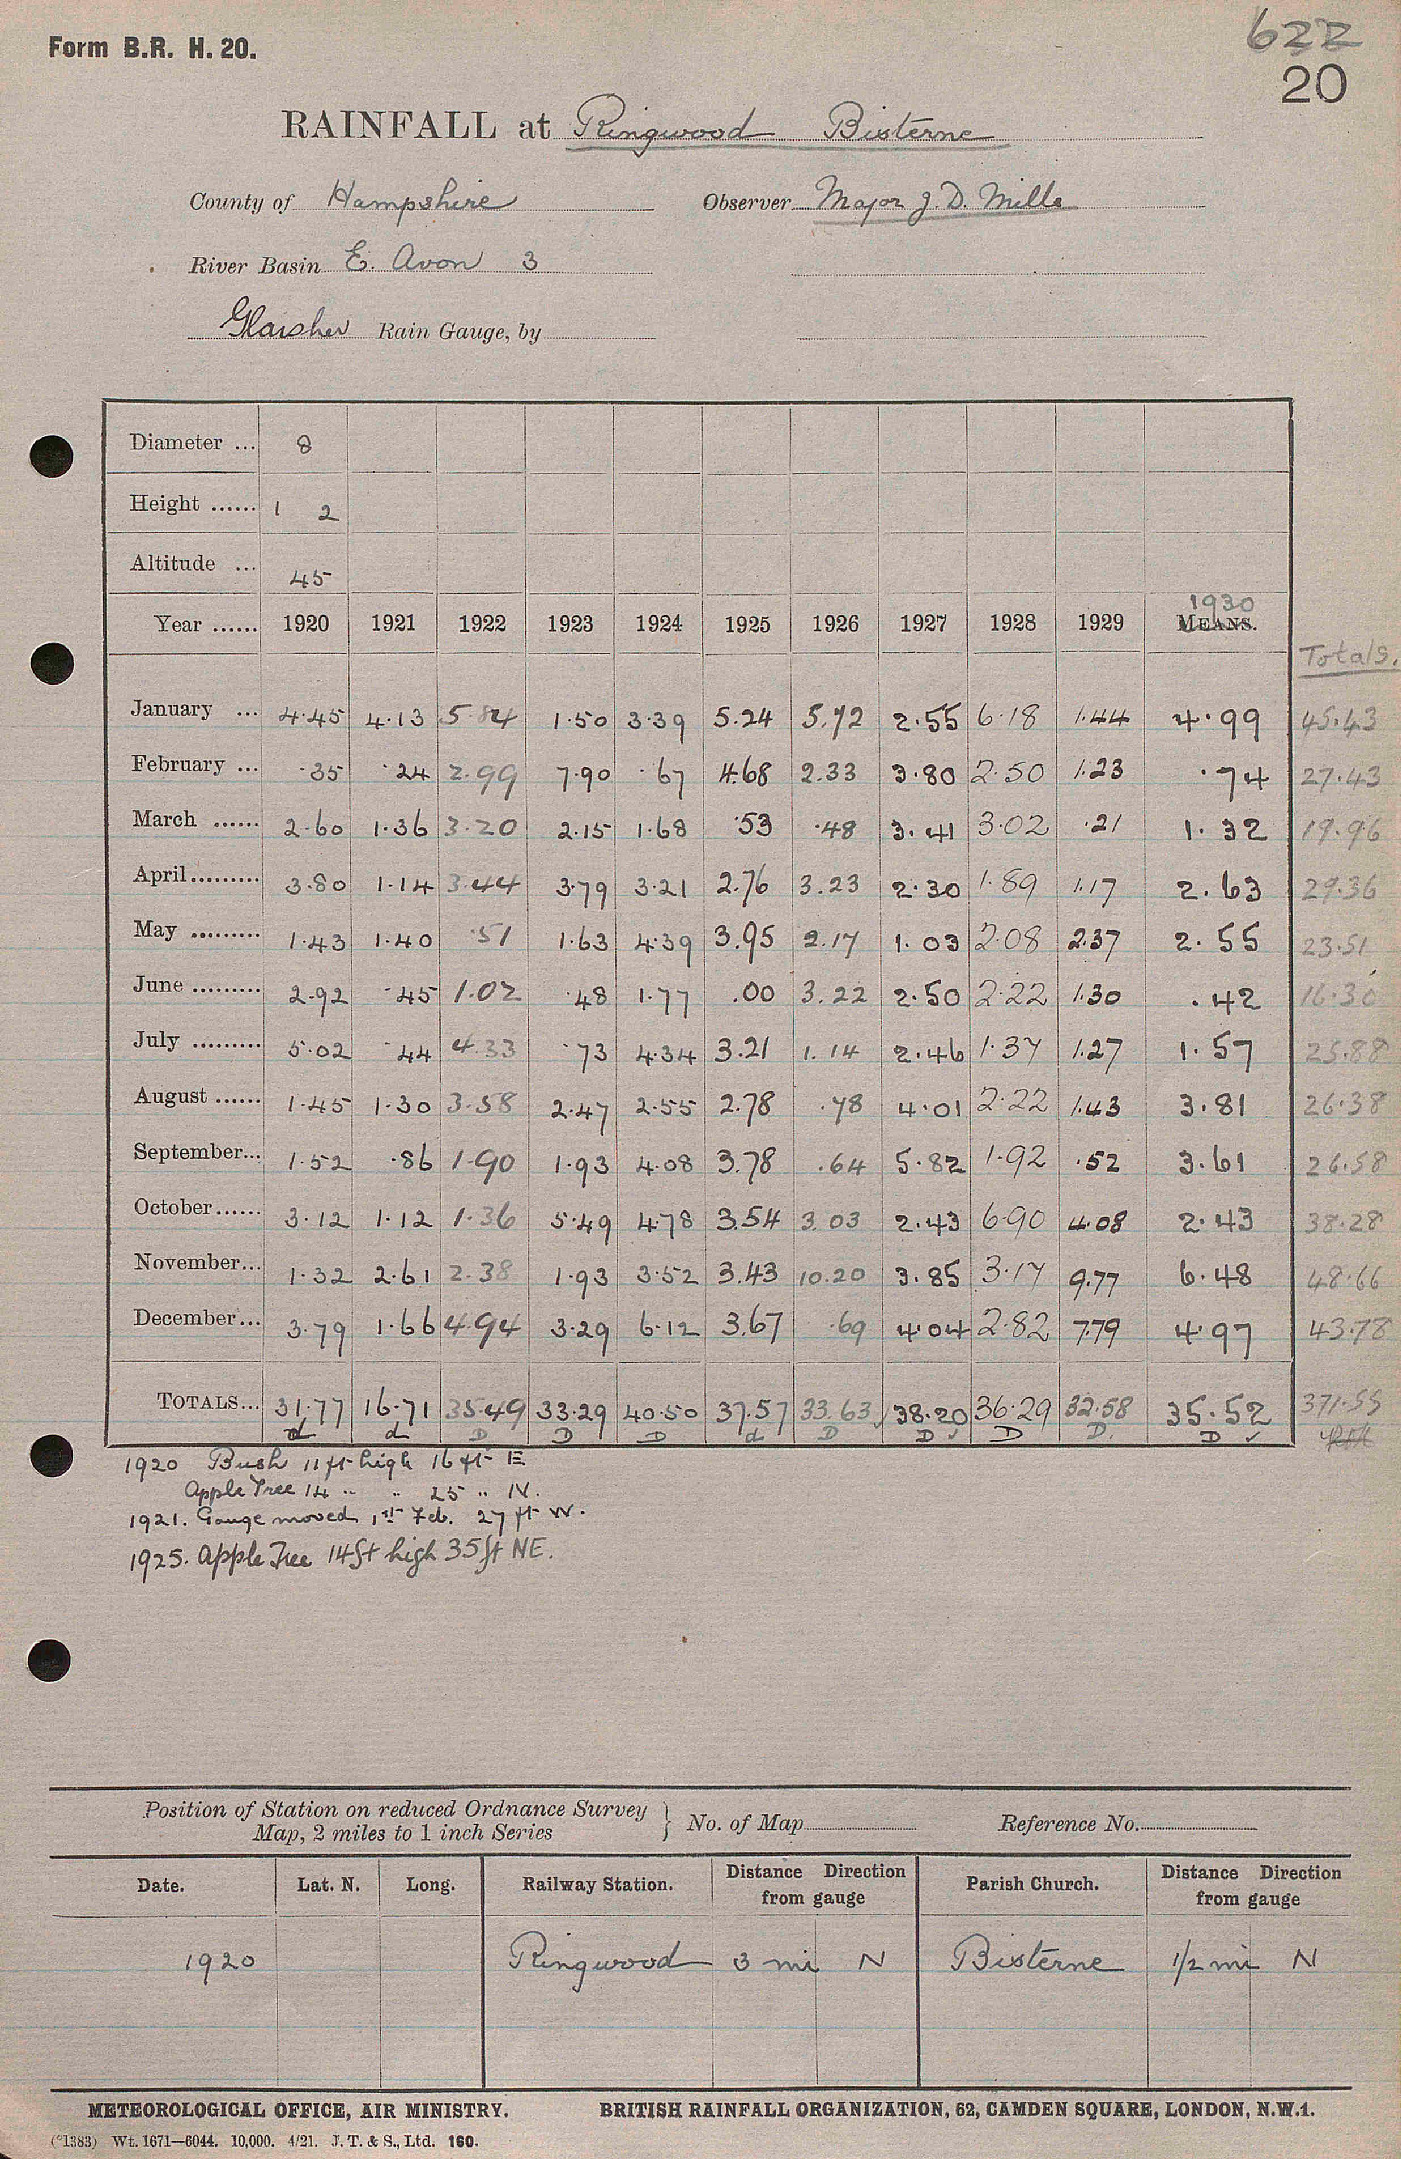 Form B.R. H. 20.
622
20
RAINFALL at Ringwood Bisterne
County of Hampshire Observer Major J. D. Mills
River Basin E. Avon 3
Glaisher Rain Gauge, by
Diameter ... 8
Height ...... 1 2
Altitude ... 45
1930
Year ...... 1920 1921 1922 1923 1924 1925 1926 1927 1928 1929 MEANS.
Totals.
January ... 4.45 4.13 5.84 1.50 3.39 5.24 5.72 2.55 6.18 1.44 4.99 45.43
February ... .35 .24 2.99 7.90 .67 4.68 2.33 3.80 2.50 1.23 .74 27.43
March ...... 2.60 1.36 3.20 2.15 1.68 .53 .48 3.41 3.02 .21 1.32 19.96
April ......... 3.80 1.14 3.44 3.79 3.21 2.76 3.23 2.30 1.89 1.17 2.63 29.36
May ......... 1.43 1.40 .51 1.63 4.39 3.95 2.17 1.03 2.08 2.37 2.55 23.51
June ......... 2.92 .45 1.02 .48 1.77 .00 3.22 2.50 2.22 1.30 .42 16.30
July ......... 5.02 .44 4.33 .73 4.34 3.21 1.14 2.46 1.37 1.27 1.57 25.88
August ...... 1.45 1.30 3.58 2.47 2.55 2.78 .78 4.01 2.22 1.43 3.81 26.38
September... 1.52 .86 1.90 1.93 4.08 3.78 .64 5.82 1.92 .52 3.61 26.58
October ...... 3.12 1.12 1.36 5.49 4.78 3.54 3.03 2.43 6.90 4.08 2.43 38.28
November... 1.32 2.61 2.38 1.93 3.52 3.43 10.20 3.85 3.17 9.77 6.48 48.66
December... 3.79 1.66 4.94 3.29 6.12 3.67 .69 4.04 2.82 7.79 4.97 43.78
TOTALS... 31.77 16.71 35.49 33.29 40.50 37.57 33.63 38.20 36.29 32.58 35.52 371.55
d d D D D d D D ✓ D D. D ✓
1920 Bush 11 ft high 16 ft E
Apple Tree 14 " " 25 " N.
1921. Gauge moved 1st Feb. 27 ft W.
1925. Apple Tree 14ft high 35ft NE.
Position of Station on reduced Ordnance Survey
Map, 2 miles to 1 inch Series } No. of Map Reference No.
Date. Lat. N. Long. Railway Station. Distance Direction from gauge Parish Church. Distance Direction from gauge
1920 Ringwood 3 mi N Bisterne 1/2 mi N
METEOROLOGICAL OFFICE, AIR MINISTRY. BRITISH RAINFALL ORGANIZATION, 62, CAMDEN SQUARE, LONDON, N.W.1.
(*1383) Wt. 1671—6044. 10,000. 4/21. J. T. & S., Ltd. 160.